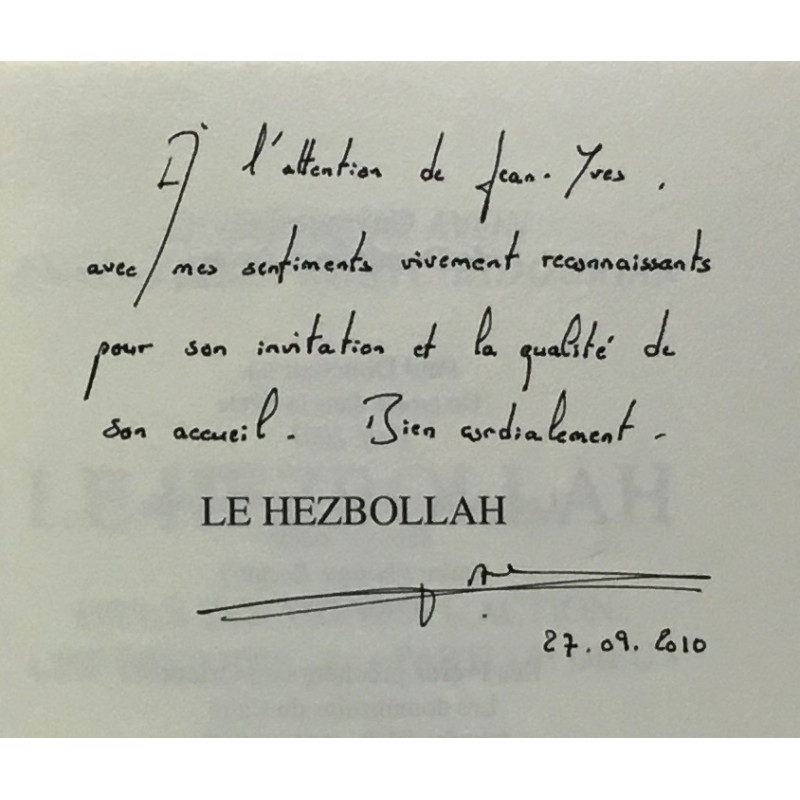 À l'attention de Jean-Yves,
avec mes sentiments vivement reconnaissants
pour son invitation et la qualité de
son accueil. Bien cordialement.
LE HEZBOLLAH
27.09.2010